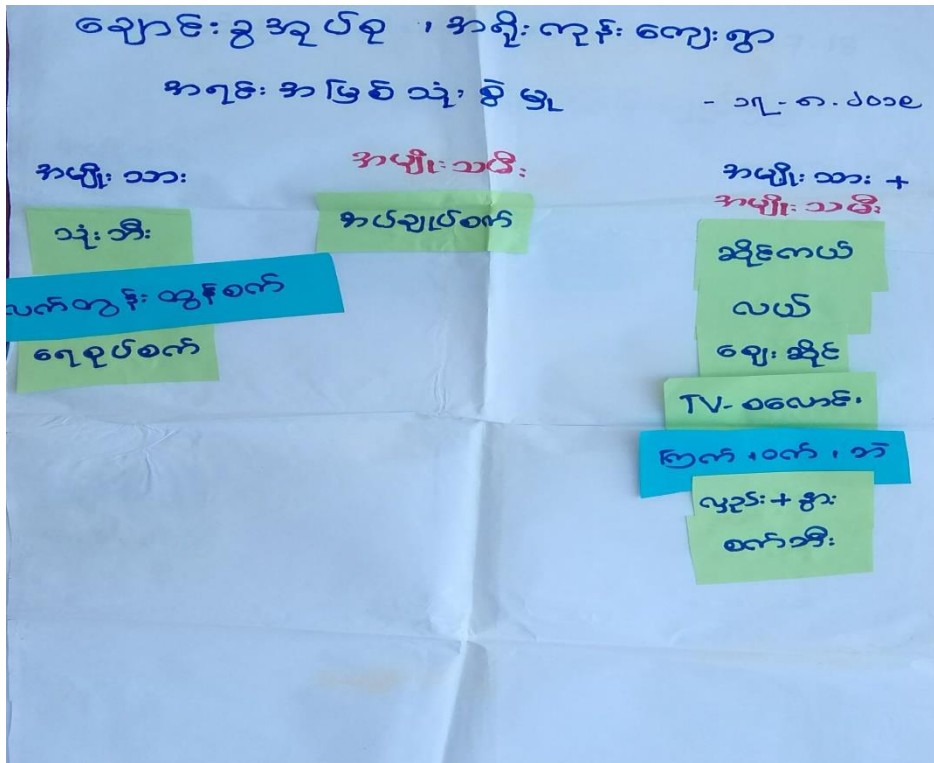 ချောင်းခွအုပ်စု ၊ အရိုးကုန်းကျေးရွာ
အရင်းအမြစ်သုံးစွဲမှု
- ၁၇-၈-၂၀၁၉
အမျိုးသား
သုံးဘီး
လက်တွန်းထွန်စက်
ရေစုပ်စက်
အမျိုးသမီး
အပ်ချုပ်စက်
အမျိုးသား +
အမျိုးသမီး
ဆိုင်ကယ်
လယ်
ဈေးဆိုင်
TV-စလောင်း
ကြက်၊ ဝက်၊ ဘဲ
လှည်း+နွား
စက်ဘီး